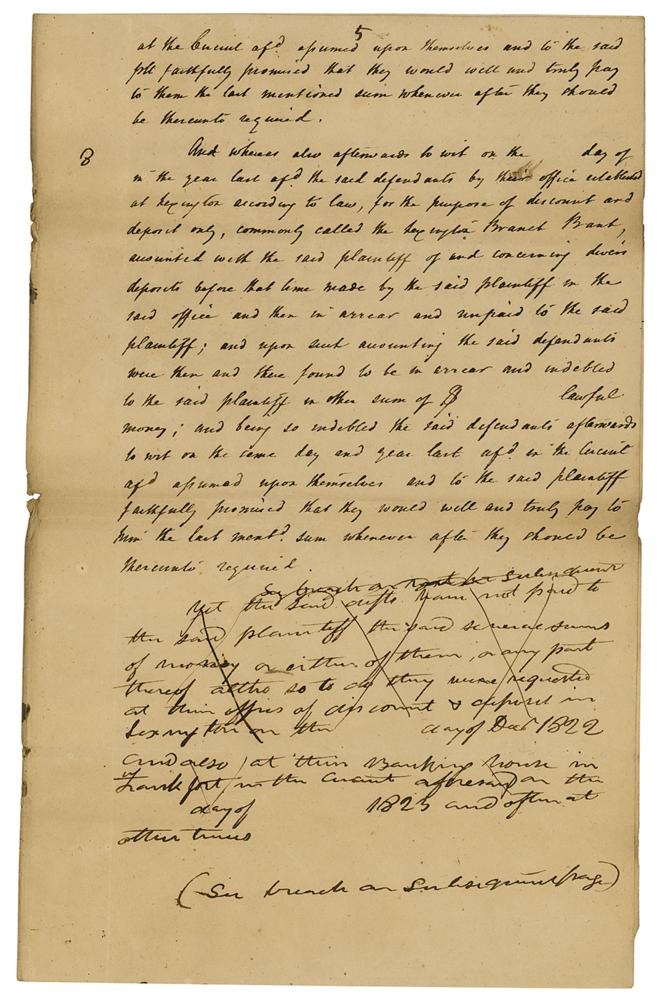 5
at the Circuit afd. assumed upon themselves and to the said
pltf faithfully promised that they would well and truly pay
to them the last mentioned sum whenever after they should
be thereunto required.
8 And whereas also afterwards to wit on the day of
in the year last afd. the said defendants by their office established
at Lexington according to law, for the purpose of discount and
deposit only, commonly called the Lexington Branch Bank,
accounted with the said plaintiff of and concerning divers
deposits before that time made by the said plaintiff in the
said office and then in arrear and unpaid to the said
plaintiff; and upon such accounting the said defendants
were then and there found to be in arrear and indebted
to the said plaintiff in other sum of $ lawful
money; and being so indebted the said defendants afterwards
to wit on the same day and year last afd. in the Circuit
afd. assumed upon themselves and to the said plaintiff
faithfully promised that they would well and truly pay to
him the last mentd. sum whenever after they should be
thereunto required.
See breach on subsequent
Yet the said defts have not paid to
the said plaintiff the said several sums
of money or either of them, or any part
thereof altho so to do they were requested
at their office of discount & deposit in
Lexington on the day of Decr 1822
and also at their Banking house in
Frankfort in the Circuit aforesaid on the
day of 1825 and often at
other times
(See breach on subsequent page)